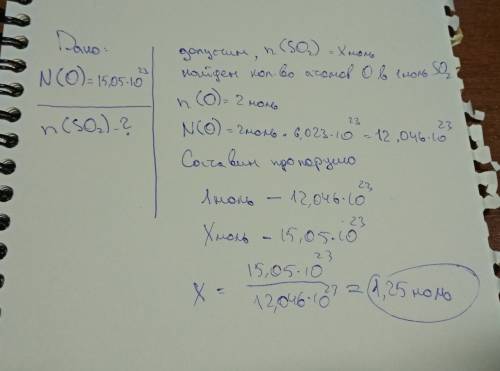 Дано:
N(O)=15,05·10²³
n(SO₂)-?
допустим, n(SO₂)=X моль
найдем кол-во атомов O в 1 моль SO₂
n(O)=2 моль
N(O)=2моль·6,023·10²³=12,046·10²³
Составим пропорцию
1моль – 12,046·10²³
X моль – 15,05·10²³
X = 15,05·10²³ / 12,046·10²³ = 1,25 моль